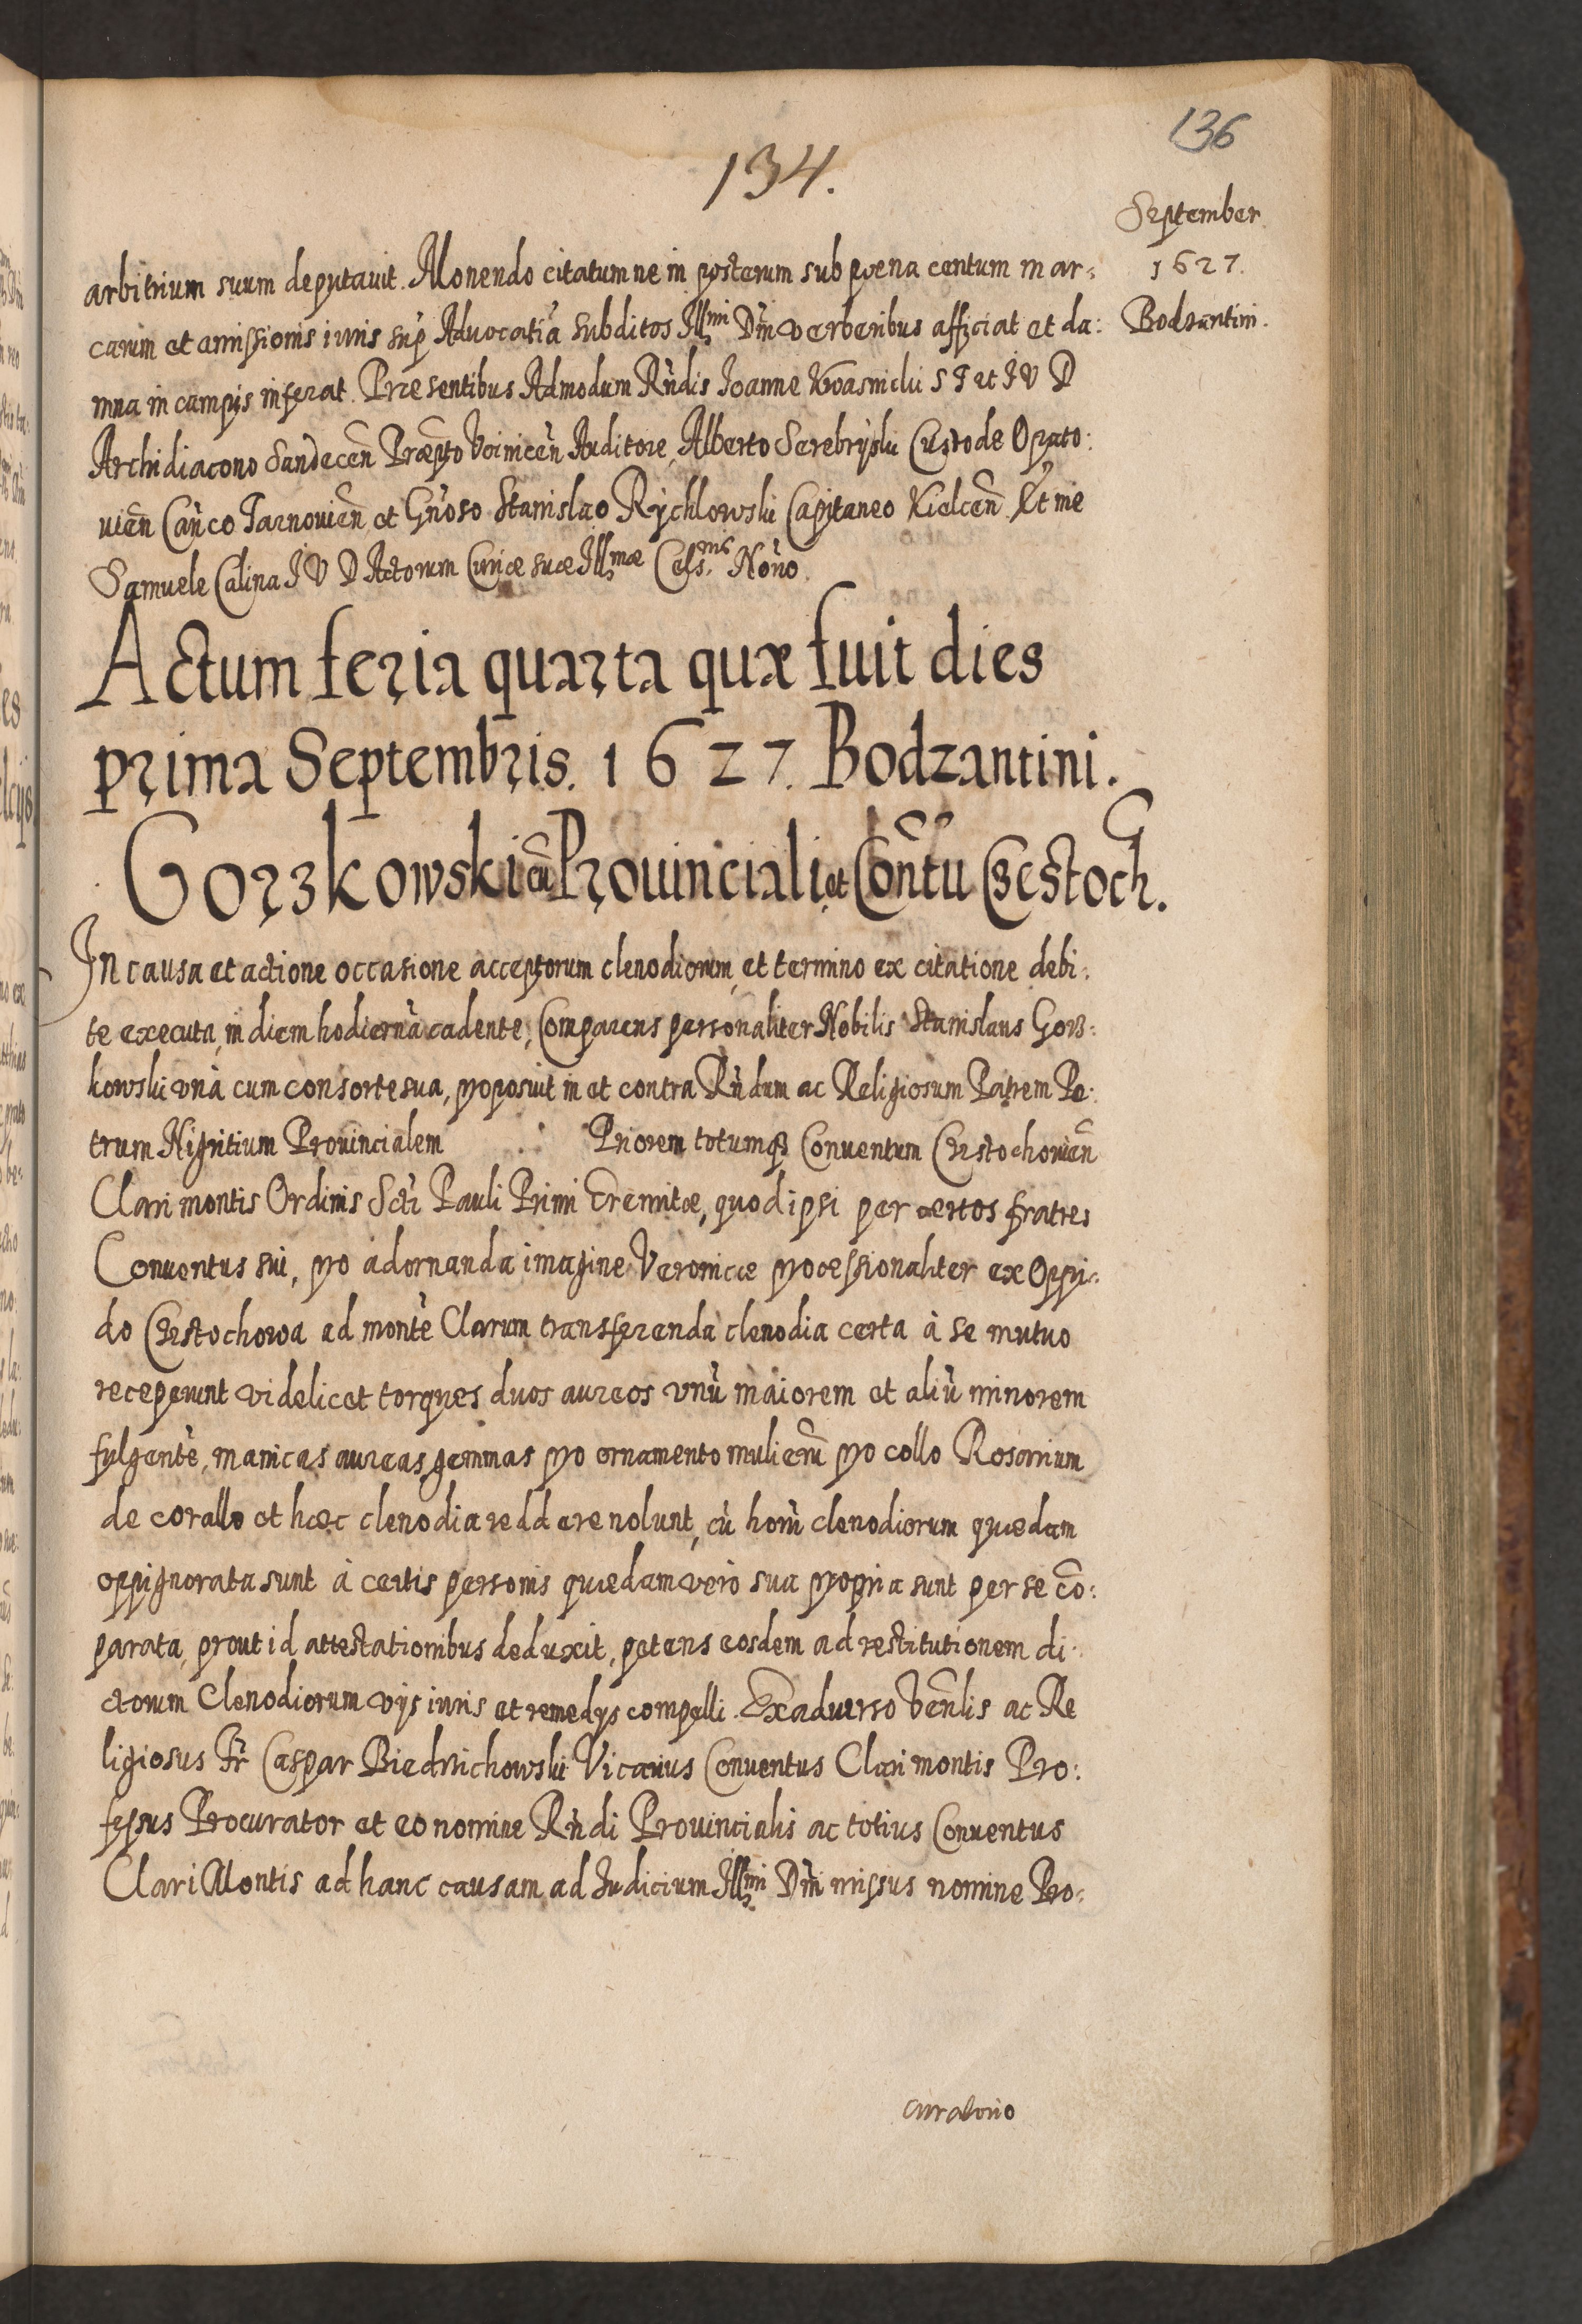 136
134.
September
1627.
Bodzantini.
arbitrium suum deputauit. Monendo citatum ne in posterum sub poena centum mar:
carum et amissionis iuris sup Aduocatiã subditos Illmi Dñi verberibus afficiat et da:
mna in campis inferat. Præsentibus Admodum Rñdis Ioanne Kwasnicki S T et I V D
Archidiacono Sandecen̄ Præpto Voinicen̄ Auditore, Alberto Serebryski Custode Opato:
uien̄ Cañco Tarnouien̄ et Gñoso Stanislao Rychlowski Capitaneo Kielcen̄ Et me
Samuele Calina I V D Actorum Curiæ suæ Illmæ Cels.nis Noño.
Actum feria quarta quæ fuit dies
prima Septembris. 1627. Bodzantini.
Gorzkowski cũ Prouinciali et Con̄tu Czestoch.
In causa et actione occasione acceptorum clenodiorum, et termino ex citatione debi:
te executa, in diem hodiernã cadente, Comparens personaliter Nobilis Stanislaus Gorz:
kowski vnà cum consorte sua, proposuit in et contra Rñdum ac Religiosum Patrem Pe:
trum Nigritium Prouincialem Priorem totumq3 Conuentum Czestochouien̄
Clari montis Ordinis Scti Pauli Primi Eremitæ, quod ipsi per certos fratres
Conuentus sui, pro adornanda imagine Veronicæ processionaliter ex Oppi:
do Czestochowa ad montẽ Clarum transferenda clenodia certa à se mutuo
receperunt videlicet torques duos aureos vnũ maiorem et aliũ minorem
fulgentẽ, manicas aureas, gemmas pro ornamento mulierũ pro collo Rosarium
de corallo et hæc clenodia reddere nolunt, cũ horũ clenodiorum quædam
oppignorata sunt à certis personis quædam verò sua propria sunt per se cõ:
parata, prout id attestationibus deduxit, petens eosdem ad restitutionem di:
ctorum Clenodiorum vijs iuris et remedijs compelli. Ex aduerso Ven̄lis ac Re
ligiosus Fr̃ Caspar Biedrzichowski Vicarius Conuentus Clari montis Pro:
fessus Procurator et eo nomine Rñdi Prouincialis ac totius Conuentus
Clari Montis ad hanc causam ad Iudicium Illmi Dñi missus nomine Pro:
curatorio